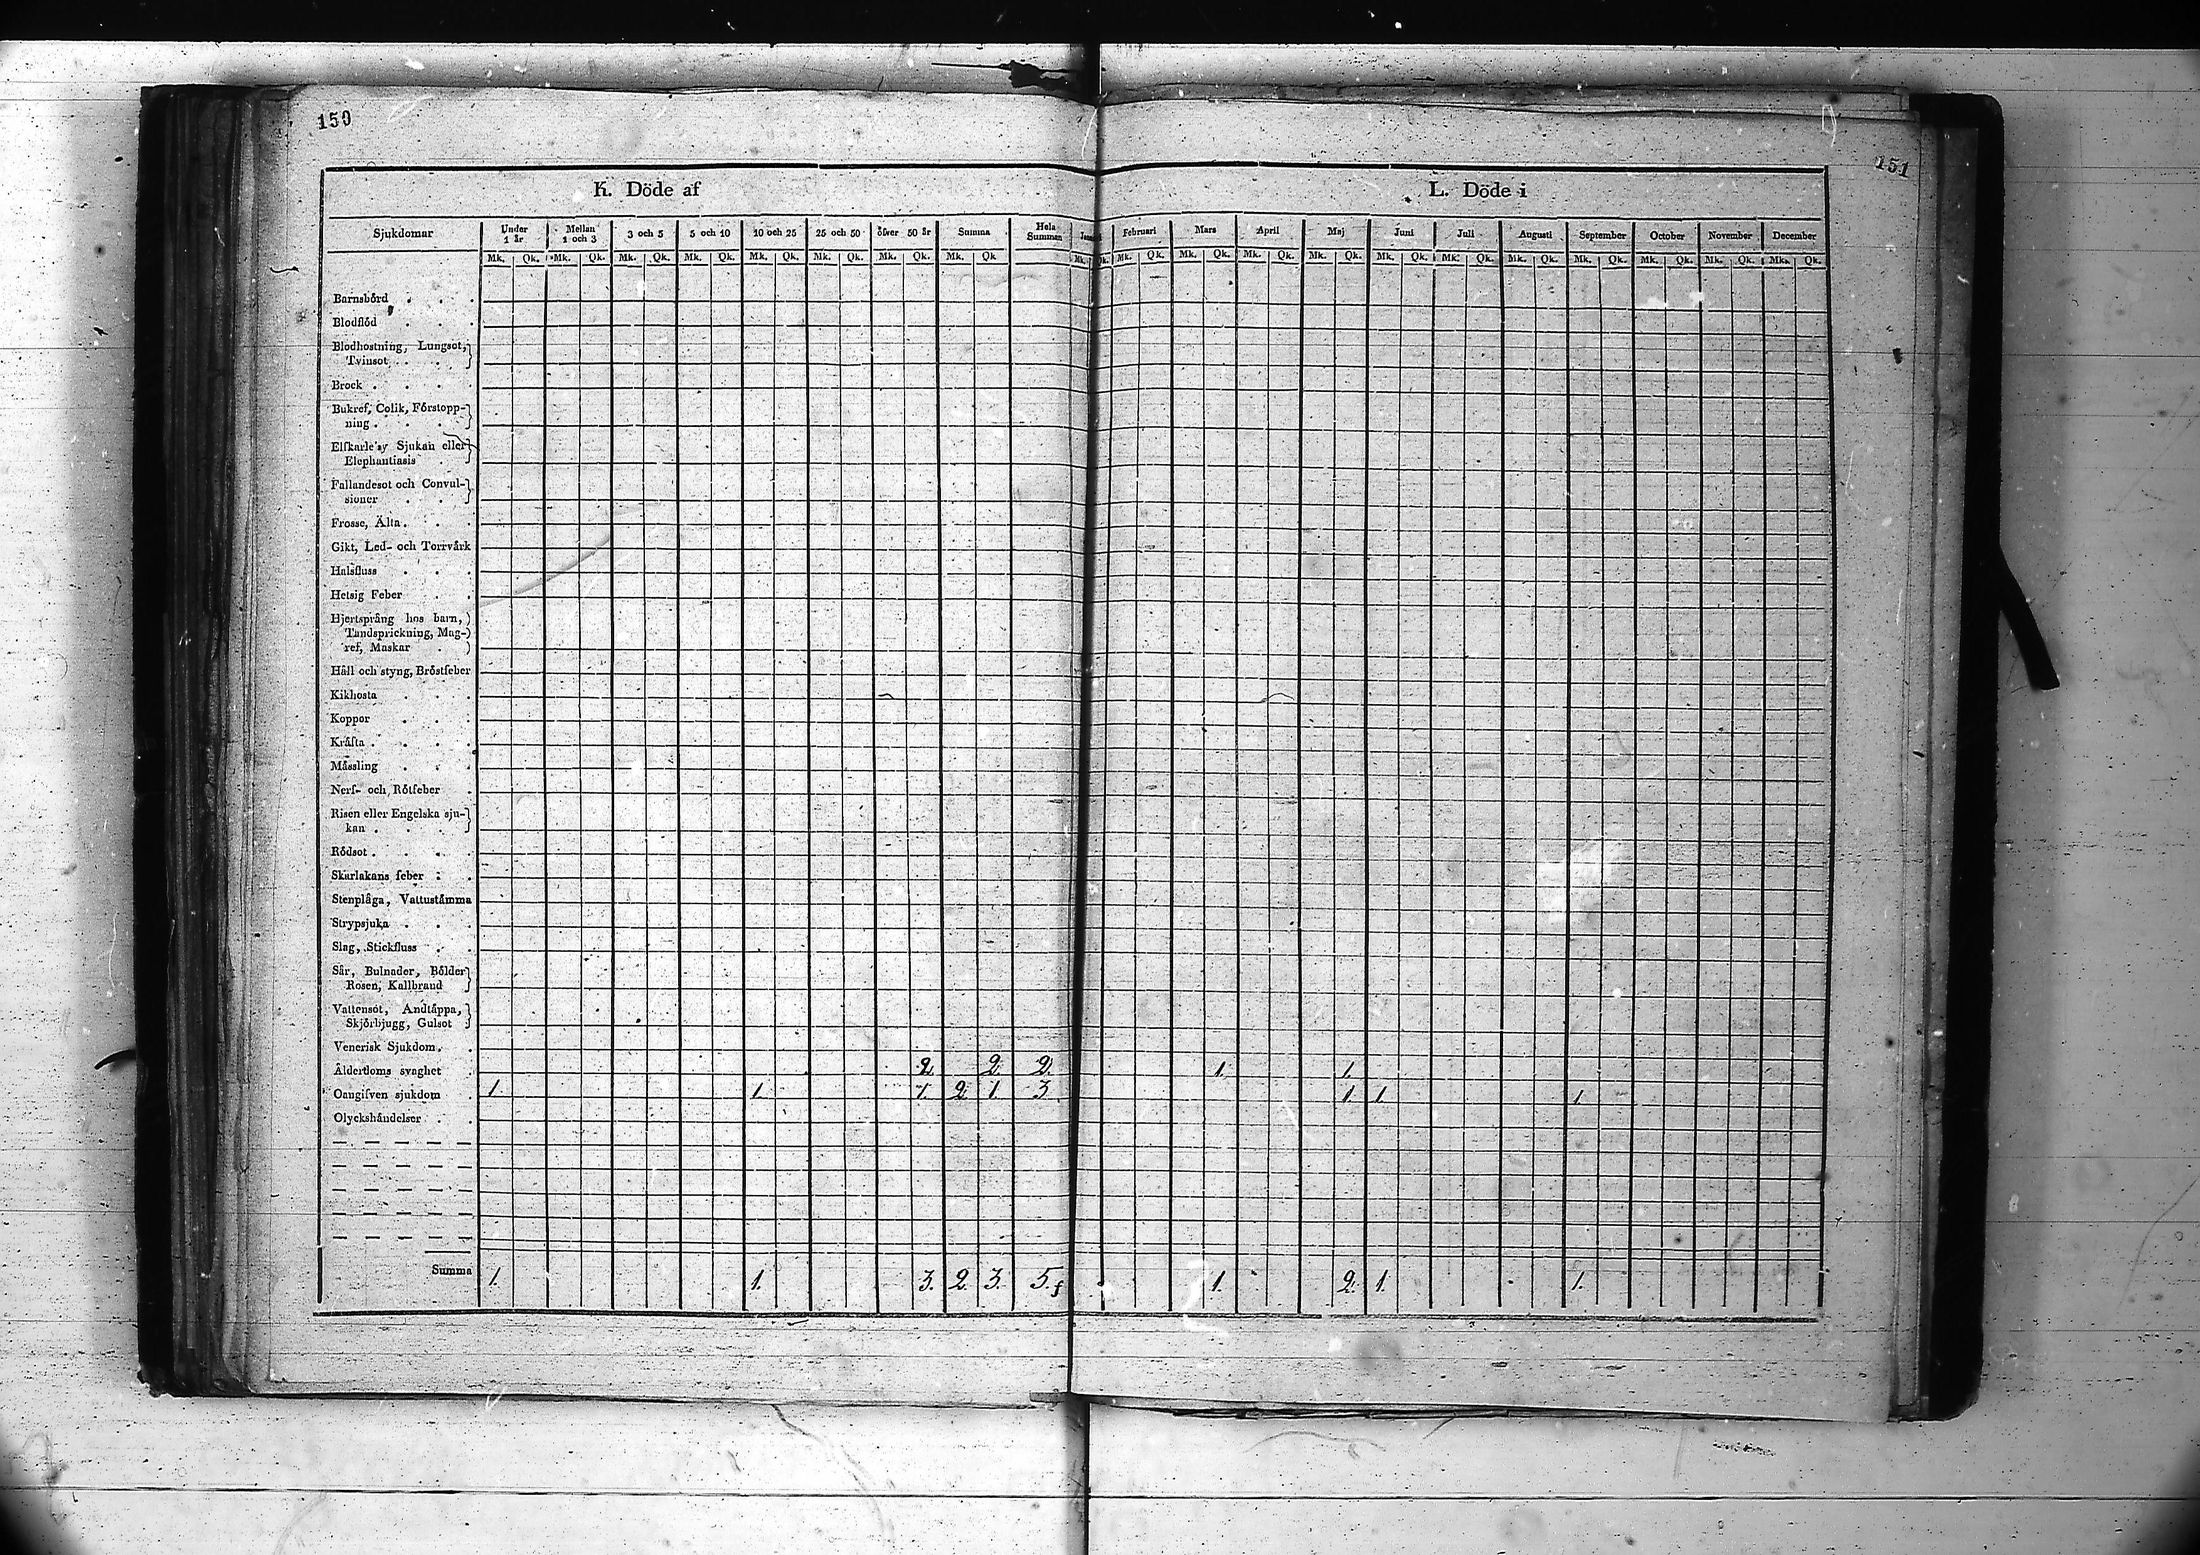 150
151
K. Döde af
L. Döde i
Sjukdomar Under 1 år Mellan 1 och 3 3 och 5 5 och 10 10 och 25 25 och 50 öfver 50 år Summa Hela Summan Februari Mars April Maj Juni Juli Augusti September October November December
Mk. Qk. Mk. Qk. Mk. Qk. Mk. Qk. Mk. Qk. Mk. Qk. Mk. Qk. Mk. Qk. Mk. Qk. Mk. Qk. Mk. Qk. Mk. Qk. Mk. Qk. Mk. Qk. Mk. Qk. Mk. Qk. Mk. Qk. Mk. Qk. Mk. Qk. Mk. Qk.
Barnsbörd . . .
Blodflöd . . .
Blodhostning, Lungsot,
Tvinsot . . .
Brock . . . .
Bukref, Colik, Förstopp-
ning . . .
Elfkarle'sy Sjukan eller
Elephantiasis .
Fallandesot och Convul-
sioner . .
Frosse, Älta . . .
Gikt, Led- och Torrvärk
Halsfluss . . .
Hetsig Feber . .
Hjertsprång hos barn,
Tandsprickning, Mag-
ref, Maskar .
Håll och styng, Bröstfeber
Kikhosta . .
Koppor . . .
Kräfta . . . .
Mässling . . .
Nerf- och Rötfeber .
Risen eller Engelska sju-
kan . . .
Rödsot . . . .
Skarlakans feber . .
Stenplåga, Vattustämma
Strypsjuka . . .
Slag, Stickfluss . .
Sår, Bulnader, Bölder
Rosen, Kallbrand
Vattensot, Andtäppa,
Skjörbjugg, Gulsot
Venerisk Sjukdom . .
Ålderdoms svaghet . 2. 2. 2. 1. 1.
Oangifven sjukdom . 1. 1. 1. 2 1. 3 1 1. 1.
Olyckshändelser . .
Summa 1. 1. 3. 2. 3. 5. 1. 2. 1. 1.